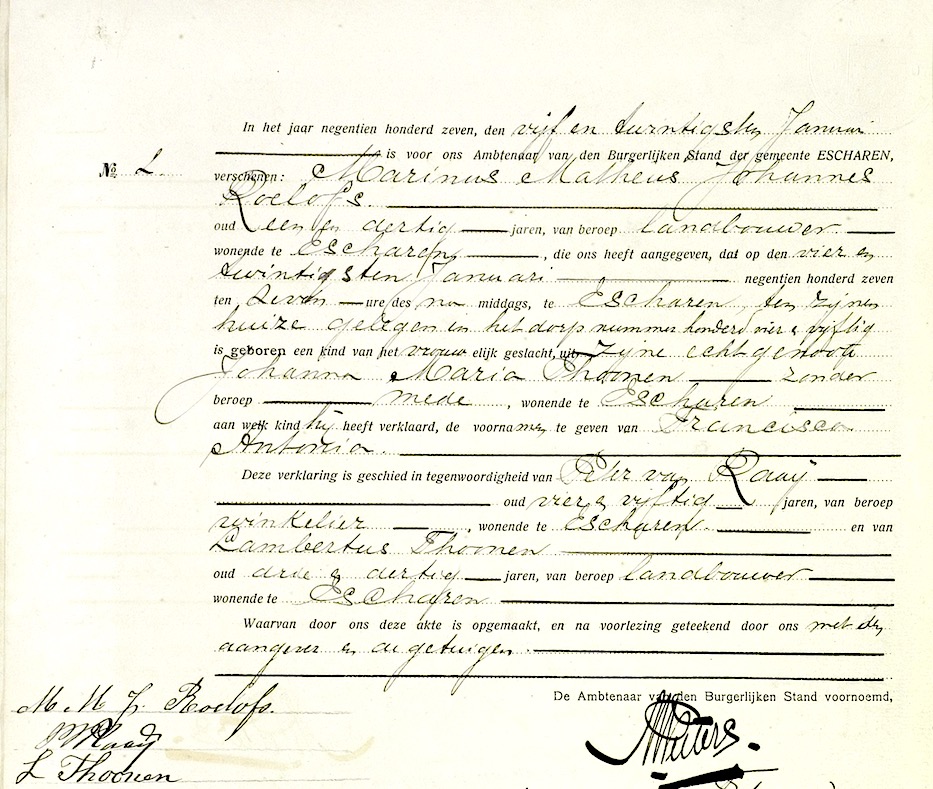 In het jaar negentien honderd zeven, den vijf en twintigsten Januari
is voor ons Ambtenaar van den Burgerlijken Stand der gemeente ESCHAREN,
№
verschenen: Marinus Matheus Johannes
Roelofs.
oud een en dertig jaren, van beroep landbouwer
wonende te Escharen, die ons heeft aangegeven, dat op den vier en
twintigsten Januari negentien honderd zeven
ten zeven ure des na middags, te Escharen, ten zijnen
huize gelegen in het dorp nummer honderd vier & vijftig
is geboren een kind van het vrouw elijk geslacht, uit zijne echtgenoote
Johanna Maria Thoonen zonder
beroep mede, wonende te Escharen
aan welk kind hij heeft verklaard, de voornamen te geven van Francisca
Antonia.
Deze verklaring is geschied in tegenwoordigheid van Peter van Raaij
oud vier & vijftig jaren, van beroep
winkelier, wonende te Escharen. en van
Lambertus Thoonen
oud drie & dertig jaren, van beroep landbouwer
wonende te Escharen
Waarvan door ons deze akte is opgemaakt, en na voorlezing geteekend door ons met den
aangever en de getuigen.
De Ambtenaar van den Burgerlijken Stand voornoemd,
M M J. Roelofs.
PvRaaij
L Thoonen